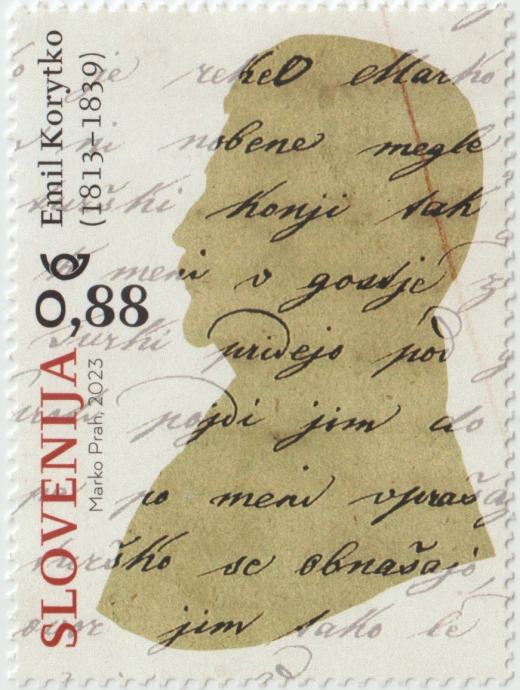 Emil Korytko
(1813–1839)
0,88
SLOVENIJA
Marko Prah, 2023
je rekel Marko
ni nobene megle
turški konji tak
meni v gostje
turki pridejo pod
pojdi jim do
po meni vpraša
turško se obnašajo
jim tako le